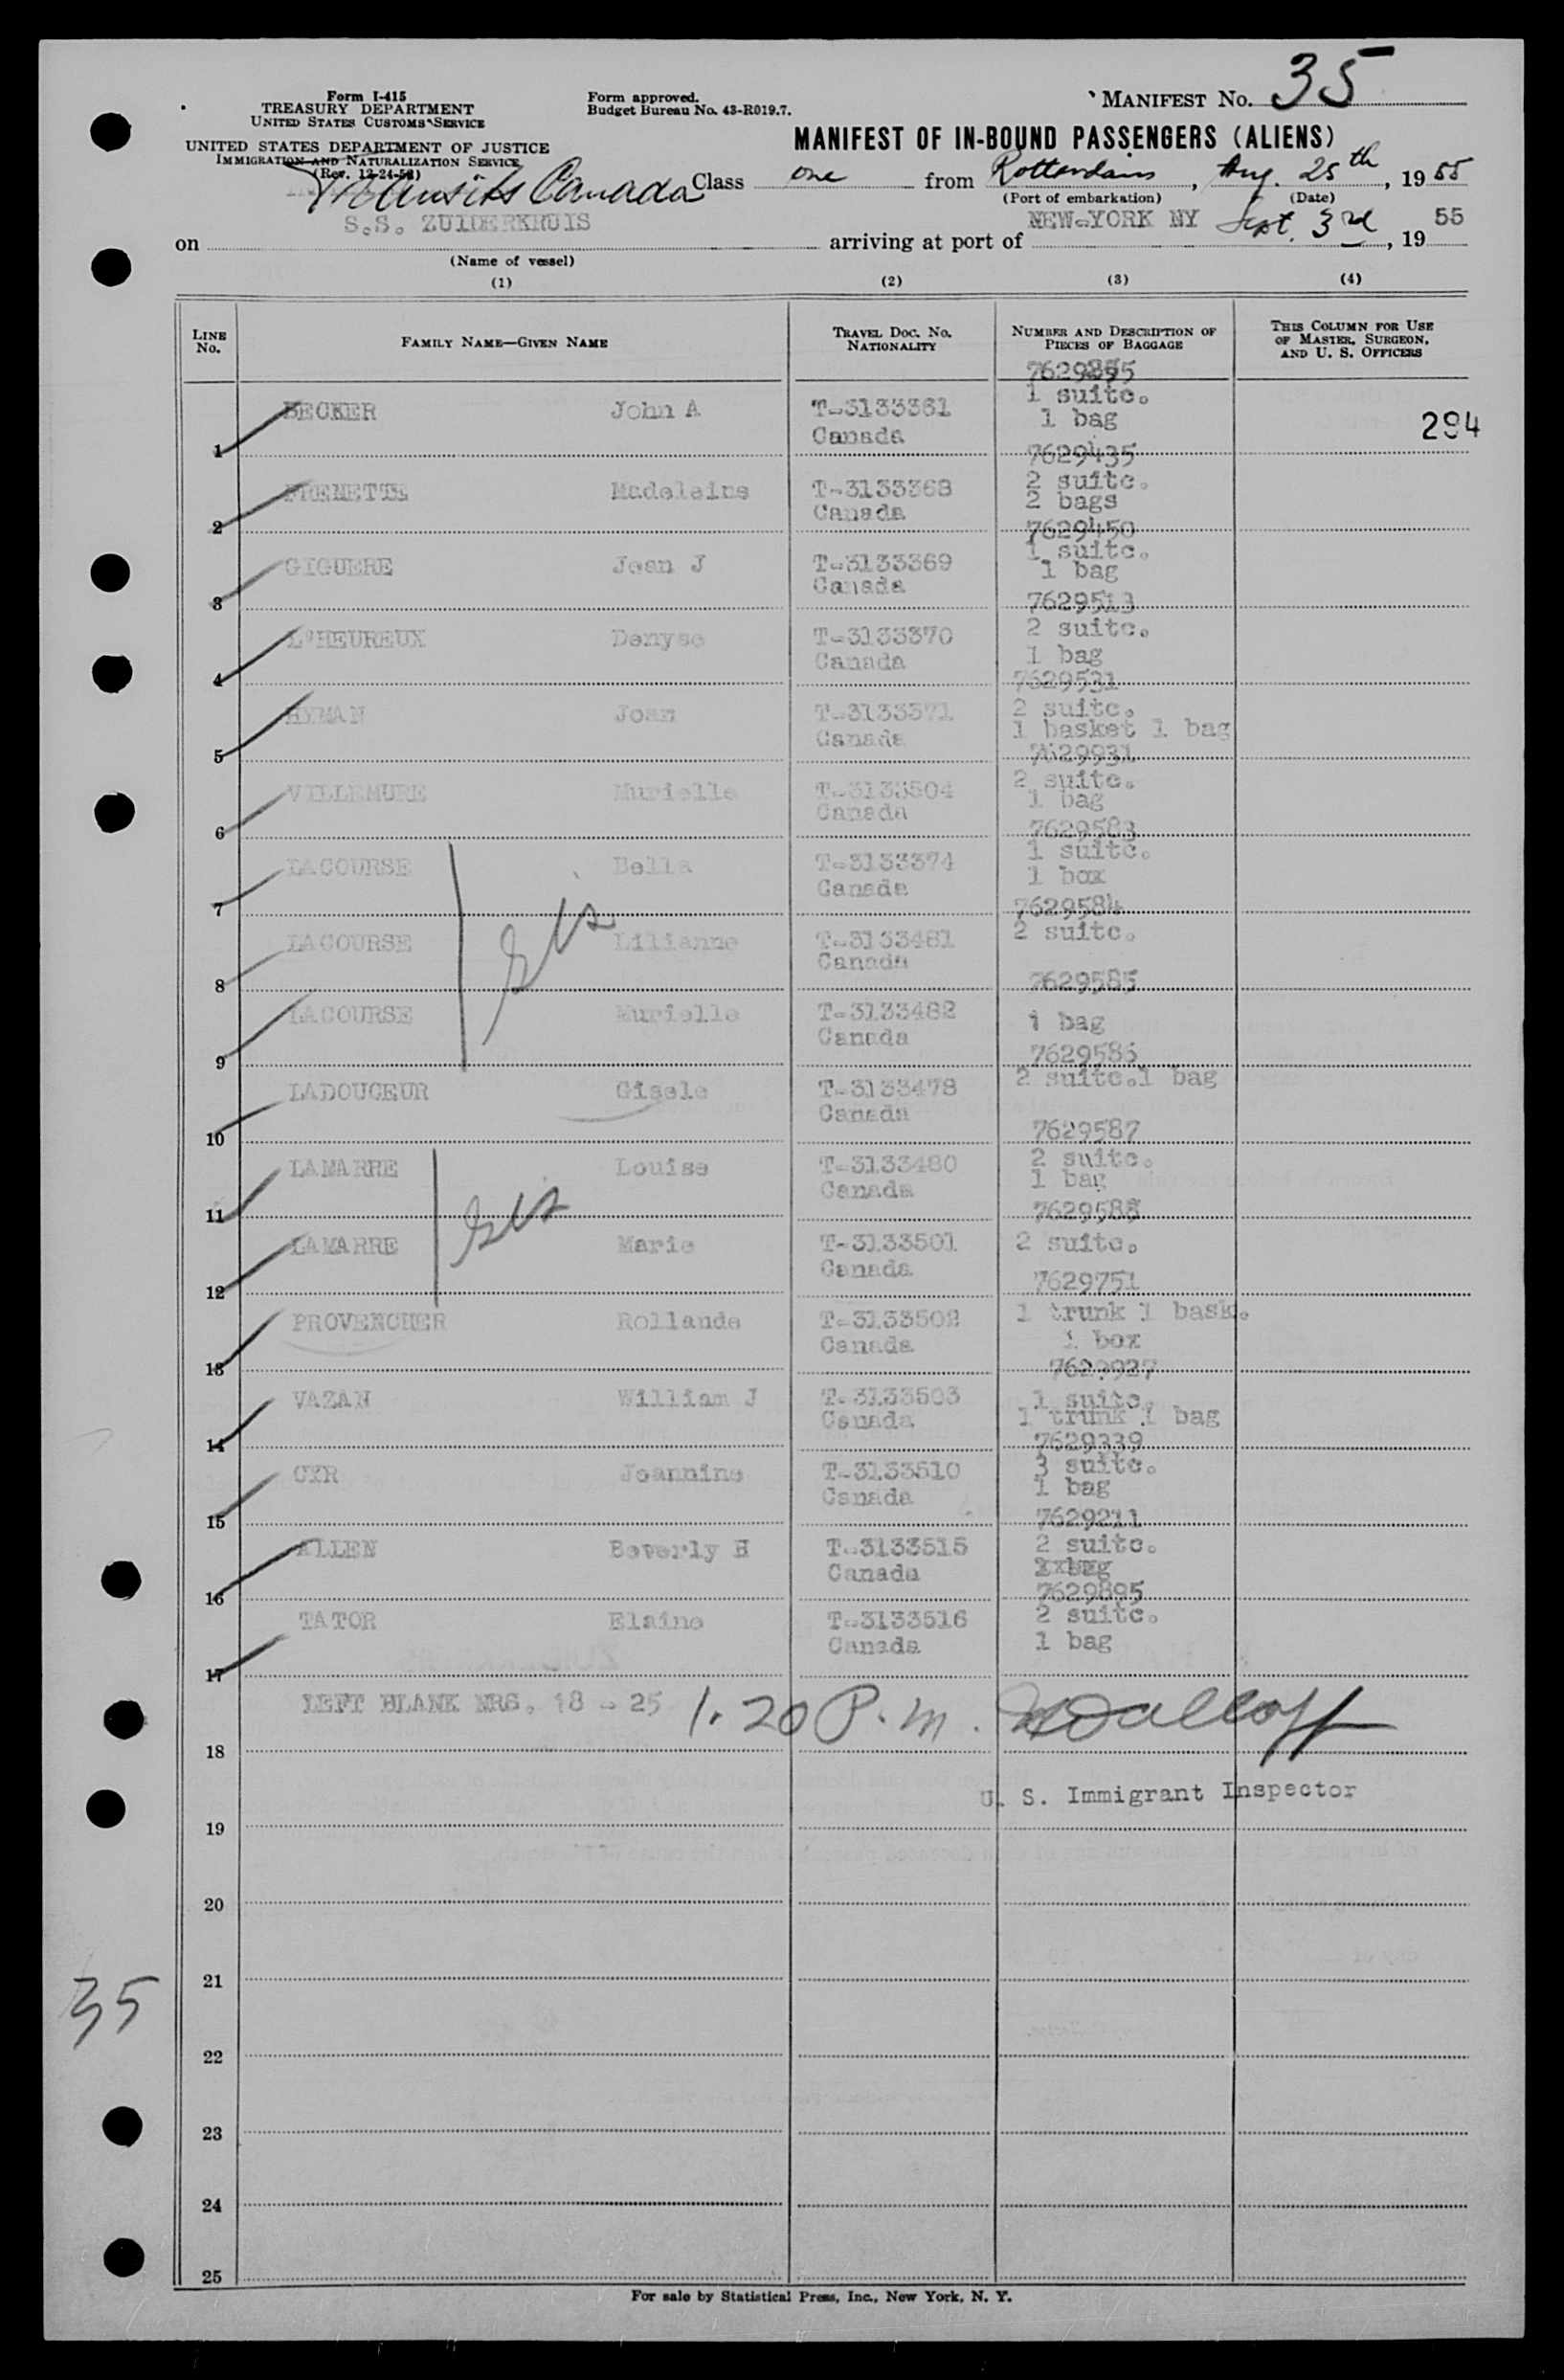 Form I-415
TREASURY DEPARTMENT
UNITED STATES CUSTOMS SERVICE
UNITED STATES DEPARTMENT OF JUSTICE
IMMIGRATION AND NATURALIZATION SERVICE
(Rev. 12-24-52)
Form approved.
Budget Bureau No. 43-R019.7.
MANIFEST No. 35
MANIFEST OF IN-BOUND PASSENGERS (ALIENS)
Transits Canada Class one from Rotterdam, Aug. 25th, 1955
(Port of embarkation) (Date)
on S.S. ZUIDERKRUIS arriving at port of NEW-YORK NY Sept. 3rd, 1955
(Name of vessel)
(1) (2) (3) (4)
LINE No. FAMILY NAME—GIVEN NAME TRAVEL DOC. No. NATIONALITY NUMBER AND DESCRIPTION OF PIECES OF BAGGAGE THIS COLUMN FOR USE OF MASTER, SURGEON, AND U. S. OFFICERS
1 BECKER John A T-3133361 Canada 1 suitc. 1 bag 294
7629435
2 FRENETTE Madeleine T-3133368 Canada 2 suitc. 2 bags
7629450
3 GIGUERE Jean J T-3133369 Canada 1 suitc. 1 bag
7629513
4 L'HEUREUX Denyse T-3133370 Canada 2 suitc. 1 bag
7629531
5 HYMAN Joan T-3133371 Canada 2 suitc. 1 basket 1 bag
7629931
6 VILLEMURE Murielle T-3133504 Canada 2 suitc. 1 bag
7629583
7 LACOURSE Bella T-3133374 Canada 1 suitc. 1 box
7629584
8 LACOURSE Lilianne T-3133481 Canada 2 suitc.
sis
7629585
9 LACOURSE Murielle T-3133482 Canada 1 bag
7629586
10 LADOUCEUR Gisele T-3133478 Canada 2 suitc.1 bag
7629587
11 LAMARRE Louise T-3133480 Canada 2 suitc. 1 bag
sis
7629588
12 LAMARRE Marie T-3133501 Canada 2 suitc.
7629751
13 PROVENCHER Rollande T-3133502 Canada 1 trunk 1 bask. 1 box
7629927
14 VAZAN William J T-3133503 Canada 1 suitc. 1 trunk 1 bag
7629339
15 CYR Jeannine T-3133510 Canada 3 suitc. 1 bag
7629211
16 ALLEN Beverly H T-3133515 Canada 2 suitc.
7629895
17 TATOR Elaine T-3133516 Canada 2 suitc. 1 bag
LEFT BLANK NRS. 18 - 25 1.20 P.m.
18
U. S. Immigrant Inspector
19
20
21
35
22
23
24
25
For sale by Statistical Press, Inc., New York, N. Y.